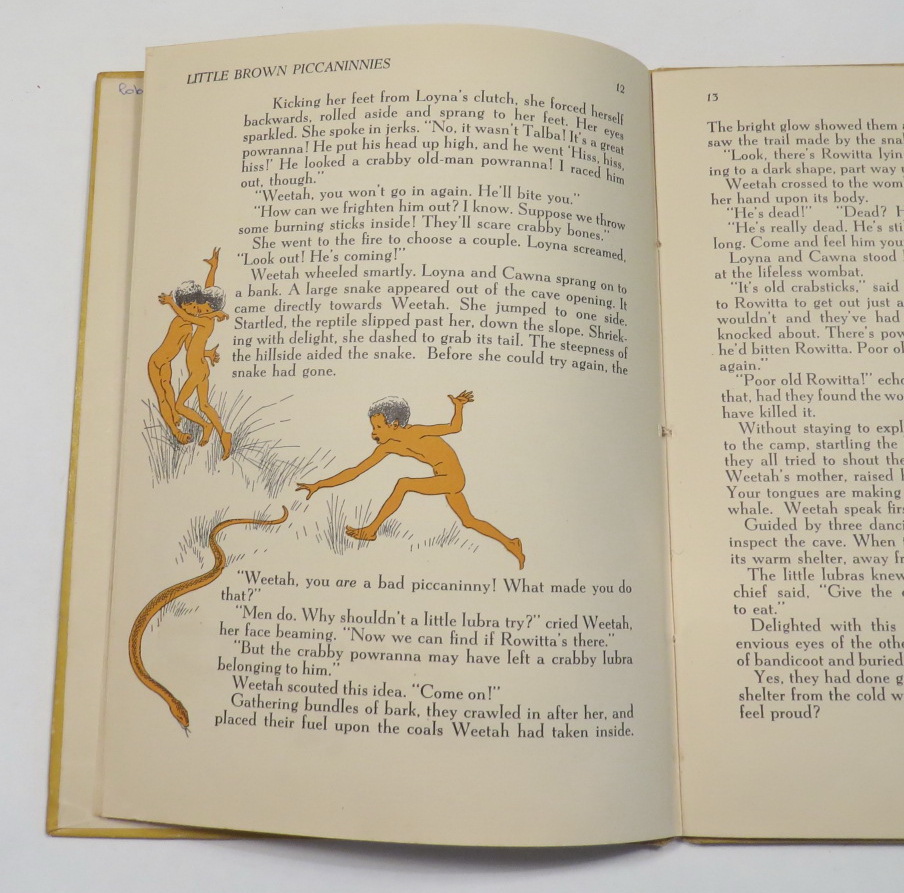 LITTLE BROWN PICCANINNIES
12
Kicking her feet from Loyna's clutch, she forced herself
backwards, rolled aside and sprang to her feet. Her eyes
sparkled. She spoke in jerks. "No, it wasn't Talba! It's a great
powranna! He put his head up high, and he went 'Hiss, hiss,
hiss!' He looked a crabby old-man powranna! I raced him
out, though."
"Weetah, you won't go in again. He'll bite you."
"How can we frighten him out? I know. Suppose we throw
some burning sticks inside! They'll scare crabby bones."
She went to the fire to choose a couple. Loyna screamed,
"Look out! He's coming!"
Weetah wheeled smartly. Loyna and Cawna sprang on to
a bank. A large snake appeared out of the cave opening. It
came directly towards Weetah. She jumped to one side.
Startled, the reptile slipped past her, down the slope. Shriek-
ing with delight, she dashed to grab its tail. The steepness of
the hillside aided the snake. Before she could try again, the
snake had gone.
"Weetah, you are a bad piccaninny! What made you do
that?"
"Men do. Why shouldn't a little lubra try?" cried Weetah,
her face beaming. "Now we can find if Rowitta's there."
"But the crabby powranna may have left a crabby lubra
belonging to him."
Weetah scouted this idea. "Come on!"
Gathering bundles of bark, they crawled in after her, and
placed their fuel upon the coals Weetah had taken inside.
13
The bright glow showed them
saw the trail made by the
"Look, there's Rowitta
ing to a dark shape, part way
Weetah crossed to the
her hand upon its body.
"He's dead!" "Dead?
"He's really dead. He's
long. Come and feel him
Loyna and Cawna stood
at the lifeless wombat.
"It's old crabsticks," said
to Rowitta to get out just
wouldn't and they've had
knocked about. There's
he'd bitten Rowitta. Poor
again."
"Poor old Rowitta!"
that, had they found the
have killed it.
Without staying to
to the camp, startling the
they all tried to shout
Weetah's mother, raised
Your tongues are making
whale. Weetah speak
Guided by three
inspect the cave. When
its warm shelter, away
The little lubras knew
chief said, "Give the
to eat."
Delighted with this
envious eyes of the
of bandicoot and buried
Yes, they had done
shelter from the cold
feel proud?